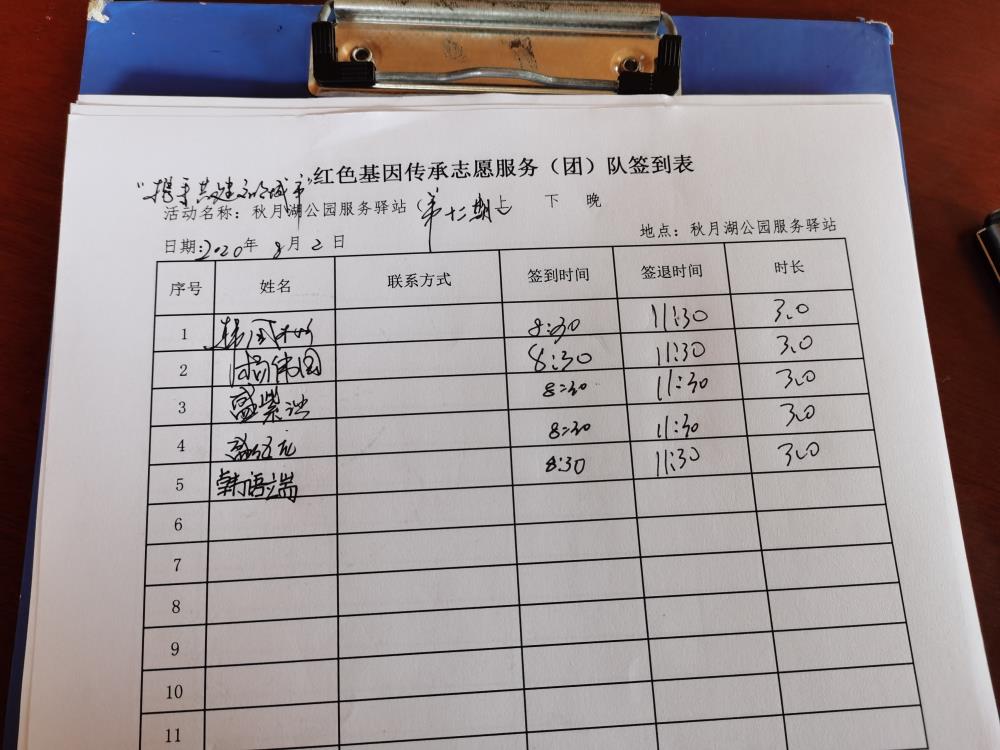 红色基因传承志愿服务（团）队签到表
"携手共建文明城市"
活动名称：秋月湖公园服务驿站（第十二期 上 下 晚
日期：2020年8月2日 地点：秋月湖公园服务驿站
序号 姓名 联系方式 签到时间 签退时间 时长
1 8:30 11:30 3.0
2 8:30 11:30 3.0
3 盛紫 8:30 11:30 3.0
4 8:30 11:30 3.0
5 韩语端 8:30 11:30 3.0
6
7
8
9
10
11